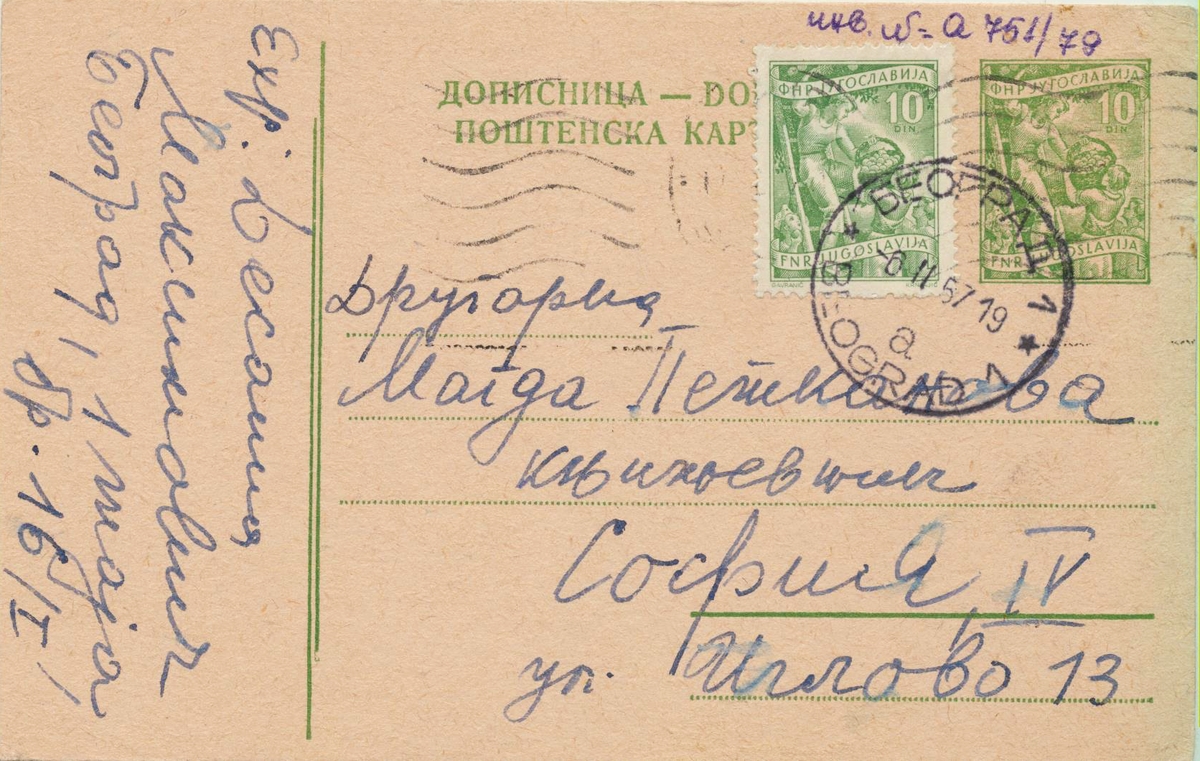 инв. № а 751/79
ДОПИСНИЦА — DO
ПОШТЕНСКА КАР
ФНР ЈУГОСЛАВИЈА
10
DIN
FNR JUGOSLAVIJA
ФНР ЈУГОСЛАВИЈА
10
DIN
FNR JUGOSLAVIJA
БЕОГРАД 1
-6 II 57 19
а
BEOGRAD 1
Другарица
Магда Петканова
књижевник
София, IV
ул. Иглово 13
Екр. Десанка
Максимовић
Београд, 1 маја
бр. 16/I